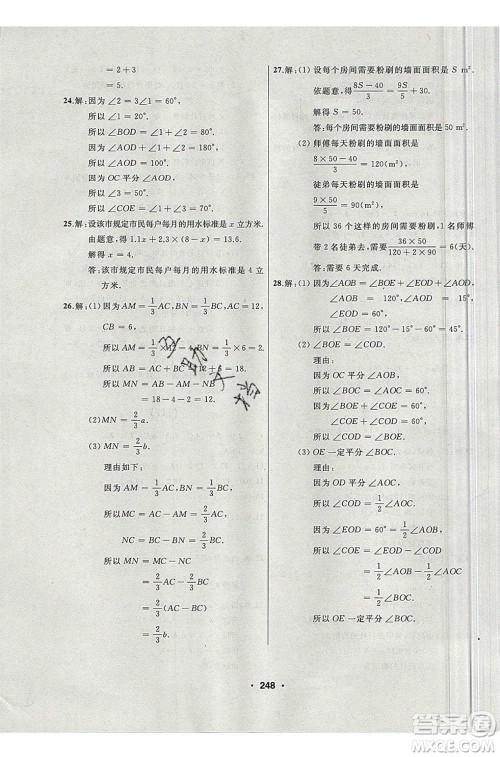 =2+3
=5.
24.解：因为∠2=3∠1=60°,
所以∠1=20°.
所以∠BOD=∠1+∠2=80°.
因为∠AOD+∠1+∠2=180°,
所以∠AOD=100°.
因为 OC 平分∠AOD,
所以∠COD=50°.
所以∠COE=∠COD+∠1=70°.
25.解：设该市规定市民每户每月的用水标准是 x 立方米.
由题意，得 1.1x+2.3(8-x)=13.6.
解得 x=4.
答：该市规定市民每户每月的用水标准是 4 立
方米.
26.解：(1)因为 AM=1/3 AC, BN=1/3 BC, AC=12,
CB=6,
所以 AM=1/3×12=4, BN=1/3×6=2.
所以 AB=AC+BC=12+6=18.
所以 MN=AB-AM-NB
=18-4-2=12.
(2) MN=2/3 a.
(3) MN=2/3 b.
理由如下：
因为 AM=1/3 AC, BN=1/3 BC,
所以 MC=AC-AM=2/3 AC,
NC=BC-BN=2/3 BC.
所以 MN=MC-NC
=2/3 AC-2/3 BC
=2/3 (AC-BC)
=2/3 b.
27.解：(1)设每个房间需要粉刷的墙面面积是 S m².
依题意，得 (8S-40)/3 = 9S/5 +30.
解得 S=50.
答：每个房间需要粉刷的墙面面积是 50 m².
(2)师傅每天粉刷的墙面面积是
(8×50-40)/3=120(m²),
徒弟每天粉刷的墙面面积是
9×50/5=90(m²).
所以 36 个这样的房间需要粉刷，1 名师傅
带 2 名徒弟去，需要 36×50/(120+90×2)=6(天).
答：需要 6 天完成.
28.解：(1)因为∠BOE+∠EOD=∠BOD+∠EOD
=60°,
所以∠BOE=60°-15°=45°.
(2)∠BOE=∠COD.
理由：
因为∠COD+∠BOD=60°,
∠BOE+∠BOD=60°,
所以∠BOE=∠COD.
(3) OE 一定平分∠BOC.
理由：
因为 OD 平分∠AOC,
所以∠COD=1/2∠AOC.
因为∠EOD=60°=1/2∠AOB,
所以∠COE=∠EOD-∠COD
=1/2∠AOB-1/2∠AOC
=1/2∠BOC.
所以 OE 一定平分∠BOC.
· 248 ·
答案圈
MXQE.COM